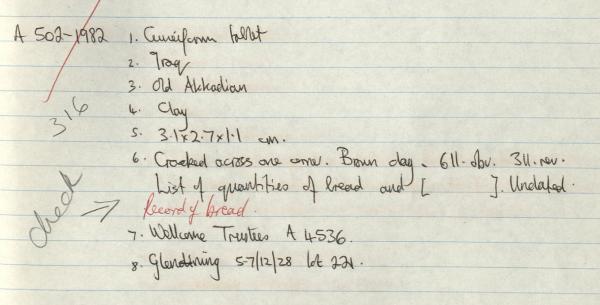 A 502-1982 1. Cuneiform tablet
2. Iraq
3. Old Akkadian
316
4. Clay
5. 3.1x2.7x1.1 cm.
6. Cracked across one corner. Brown clay. 6ll. obv. 3ll. rev.
List of quantities of bread and [ ]. Undated.
check → Record of bread.
7. Wellcome Trustees A 4536.
8. Glendining 5-7/12/28 lot 221.